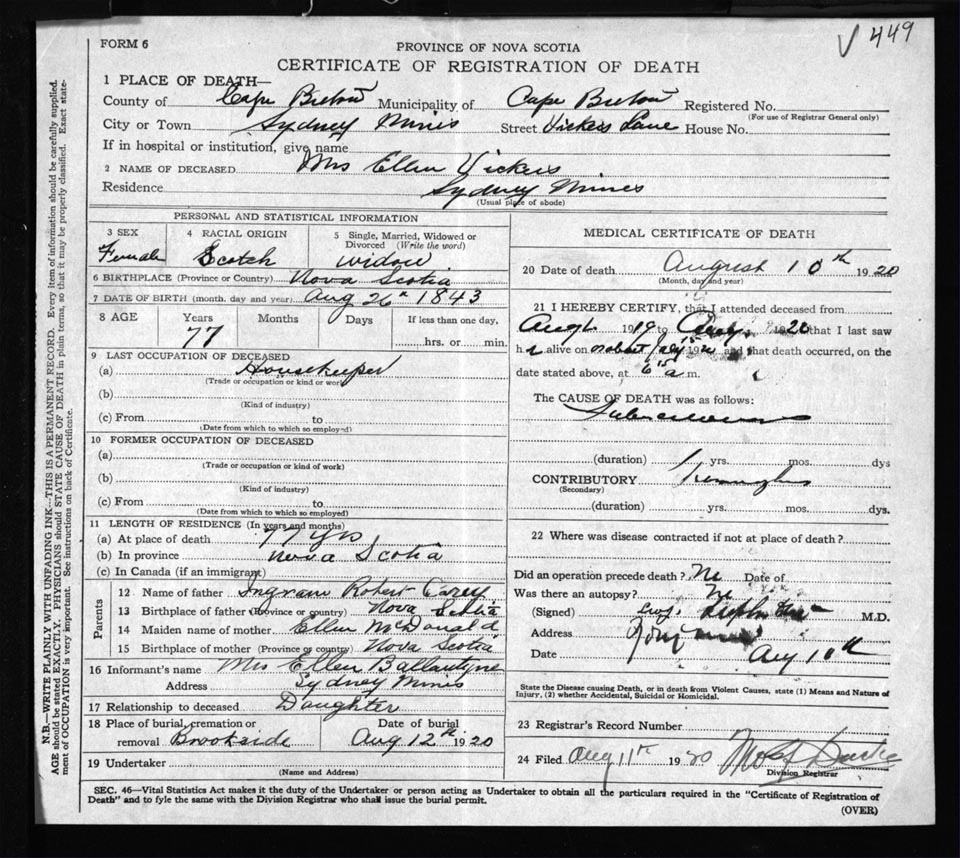 449
FORM 6
PROVINCE OF NOVA SCOTIA
CERTIFICATE OF REGISTRATION OF DEATH
1 PLACE OF DEATH—
County of Cape Breton Municipality of Cape Breton Registered No.
(For use of Registrar General only)
City or Town Sydney Mines Street Vickers Lane House No.
If in hospital or institution, give name
2 NAME OF DECEASED Mrs Ellen Vickers
Residence Sydney Mines
(Usual place of abode)
PERSONAL AND STATISTICAL INFORMATION
3 SEX 4 RACIAL ORIGIN 5 Single, Married, Widowed or Divorced (Write the word)
Female Scotch widow
6 BIRTHPLACE (Province or Country) Nova Scotia
7 DATE OF BIRTH (month, day and year) Aug 26th 1843
8 AGE Years Months Days If less than one day,
77 hrs. or min.
9 LAST OCCUPATION OF DECEASED
(a) Housekeeper
(Trade or occupation or kind or work)
(b)
(Kind of industry)
(c) From to
(Date from which to which so employed)
10 FORMER OCCUPATION OF DECEASED
(a)
(Trade or occupation or kind of work)
(b)
(Kind of industry)
(c) From to
(Date from which to which so employed)
11 LENGTH OF RESIDENCE (In years and months)
(a) At place of death 77 yrs
(b) In province Nova Scotia
(c) In Canada (if an immigrant)
Parents
12 Name of father Ingram Robert Carey
13 Birthplace of father (Province or country) Nova Scotia
14 Maiden name of mother Ellen McDonald
15 Birthplace of mother (Province or country) Nova Scotia
16 Informant's name Mrs Ellen Ballantyne
Address Sydney Mines
17 Relationship to deceased Daughter
18 Place of burial, cremation or removal Brookside Date of burial Aug 12th 1920
19 Undertaker
(Name and Address)
MEDICAL CERTIFICATE OF DEATH
20 Date of death August 10th 1920
(Month, day and year)
21 I HEREBY CERTIFY, that I attended deceased from
1919 to 1920 that I last saw
h alive on and that death occurred, on the
date stated above, at 6 a m.
The CAUSE OF DEATH was as follows:
Tuberculosis
(duration) 1 yrs. mos. dys
CONTRIBUTORY
(Secondary)
(duration) yrs. mos. dys.
22 Where was disease contracted if not at place of death?
Did an operation precede death? No Date of
Was there an autopsy? No
(Signed) M.D.
Address
Date Aug 10th
State the Disease causing Death, or in death from Violent Causes, state (1) Means and Nature of
Injury, (2) whether Accidental, Suicidal or Homicidal.
23 Registrar's Record Number
24 Filed Aug 11th 1920
Division Registrar
SEC. 46—Vital Statistics Act makes it the duty of the Undertaker or person acting as Undertaker to obtain all the particulars required in the "Certificate of Registration of
Death" and to fyle the same with the Division Registrar who shall issue the burial permit.
(OVER)
N.B.—WRITE PLAINLY WITH UNFADING INK—THIS IS A PERMANENT RECORD. Every item of information should be carefully supplied.
AGE should be stated EXACTLY. PHYSICIANS should STATE CAUSE OF DEATH in plain terms, so that it may be properly classified. Exact state-
ment of OCCUPATION is very important. See instructions on back of Certificate.